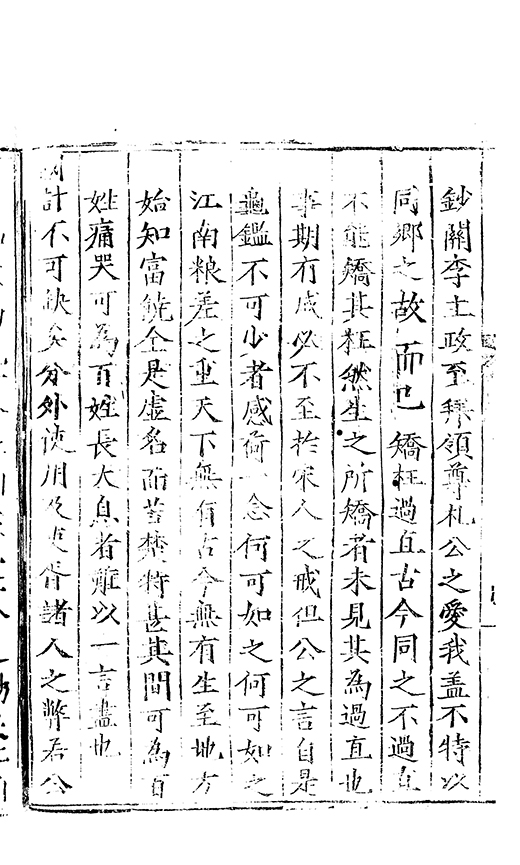 鈔關李主政至拜領尊札公之愛我蓋不特以
同鄉之故而已矯枉過直古今同之不過直
不能矯其枉然生之所矯者未見其為過直也
事期有成必不至於宋人之戒但公之言自是
龜鑑不可少者感荷一念何可如之何可如之
江南粮差之重天下無有古今無有生至地方
始知富饒全是虛名而苦楚特甚其間可為百
姓痛哭可為百姓長太息者難以一言盡也
計不可缺矣分外使用及吏胥諸人之弊若公